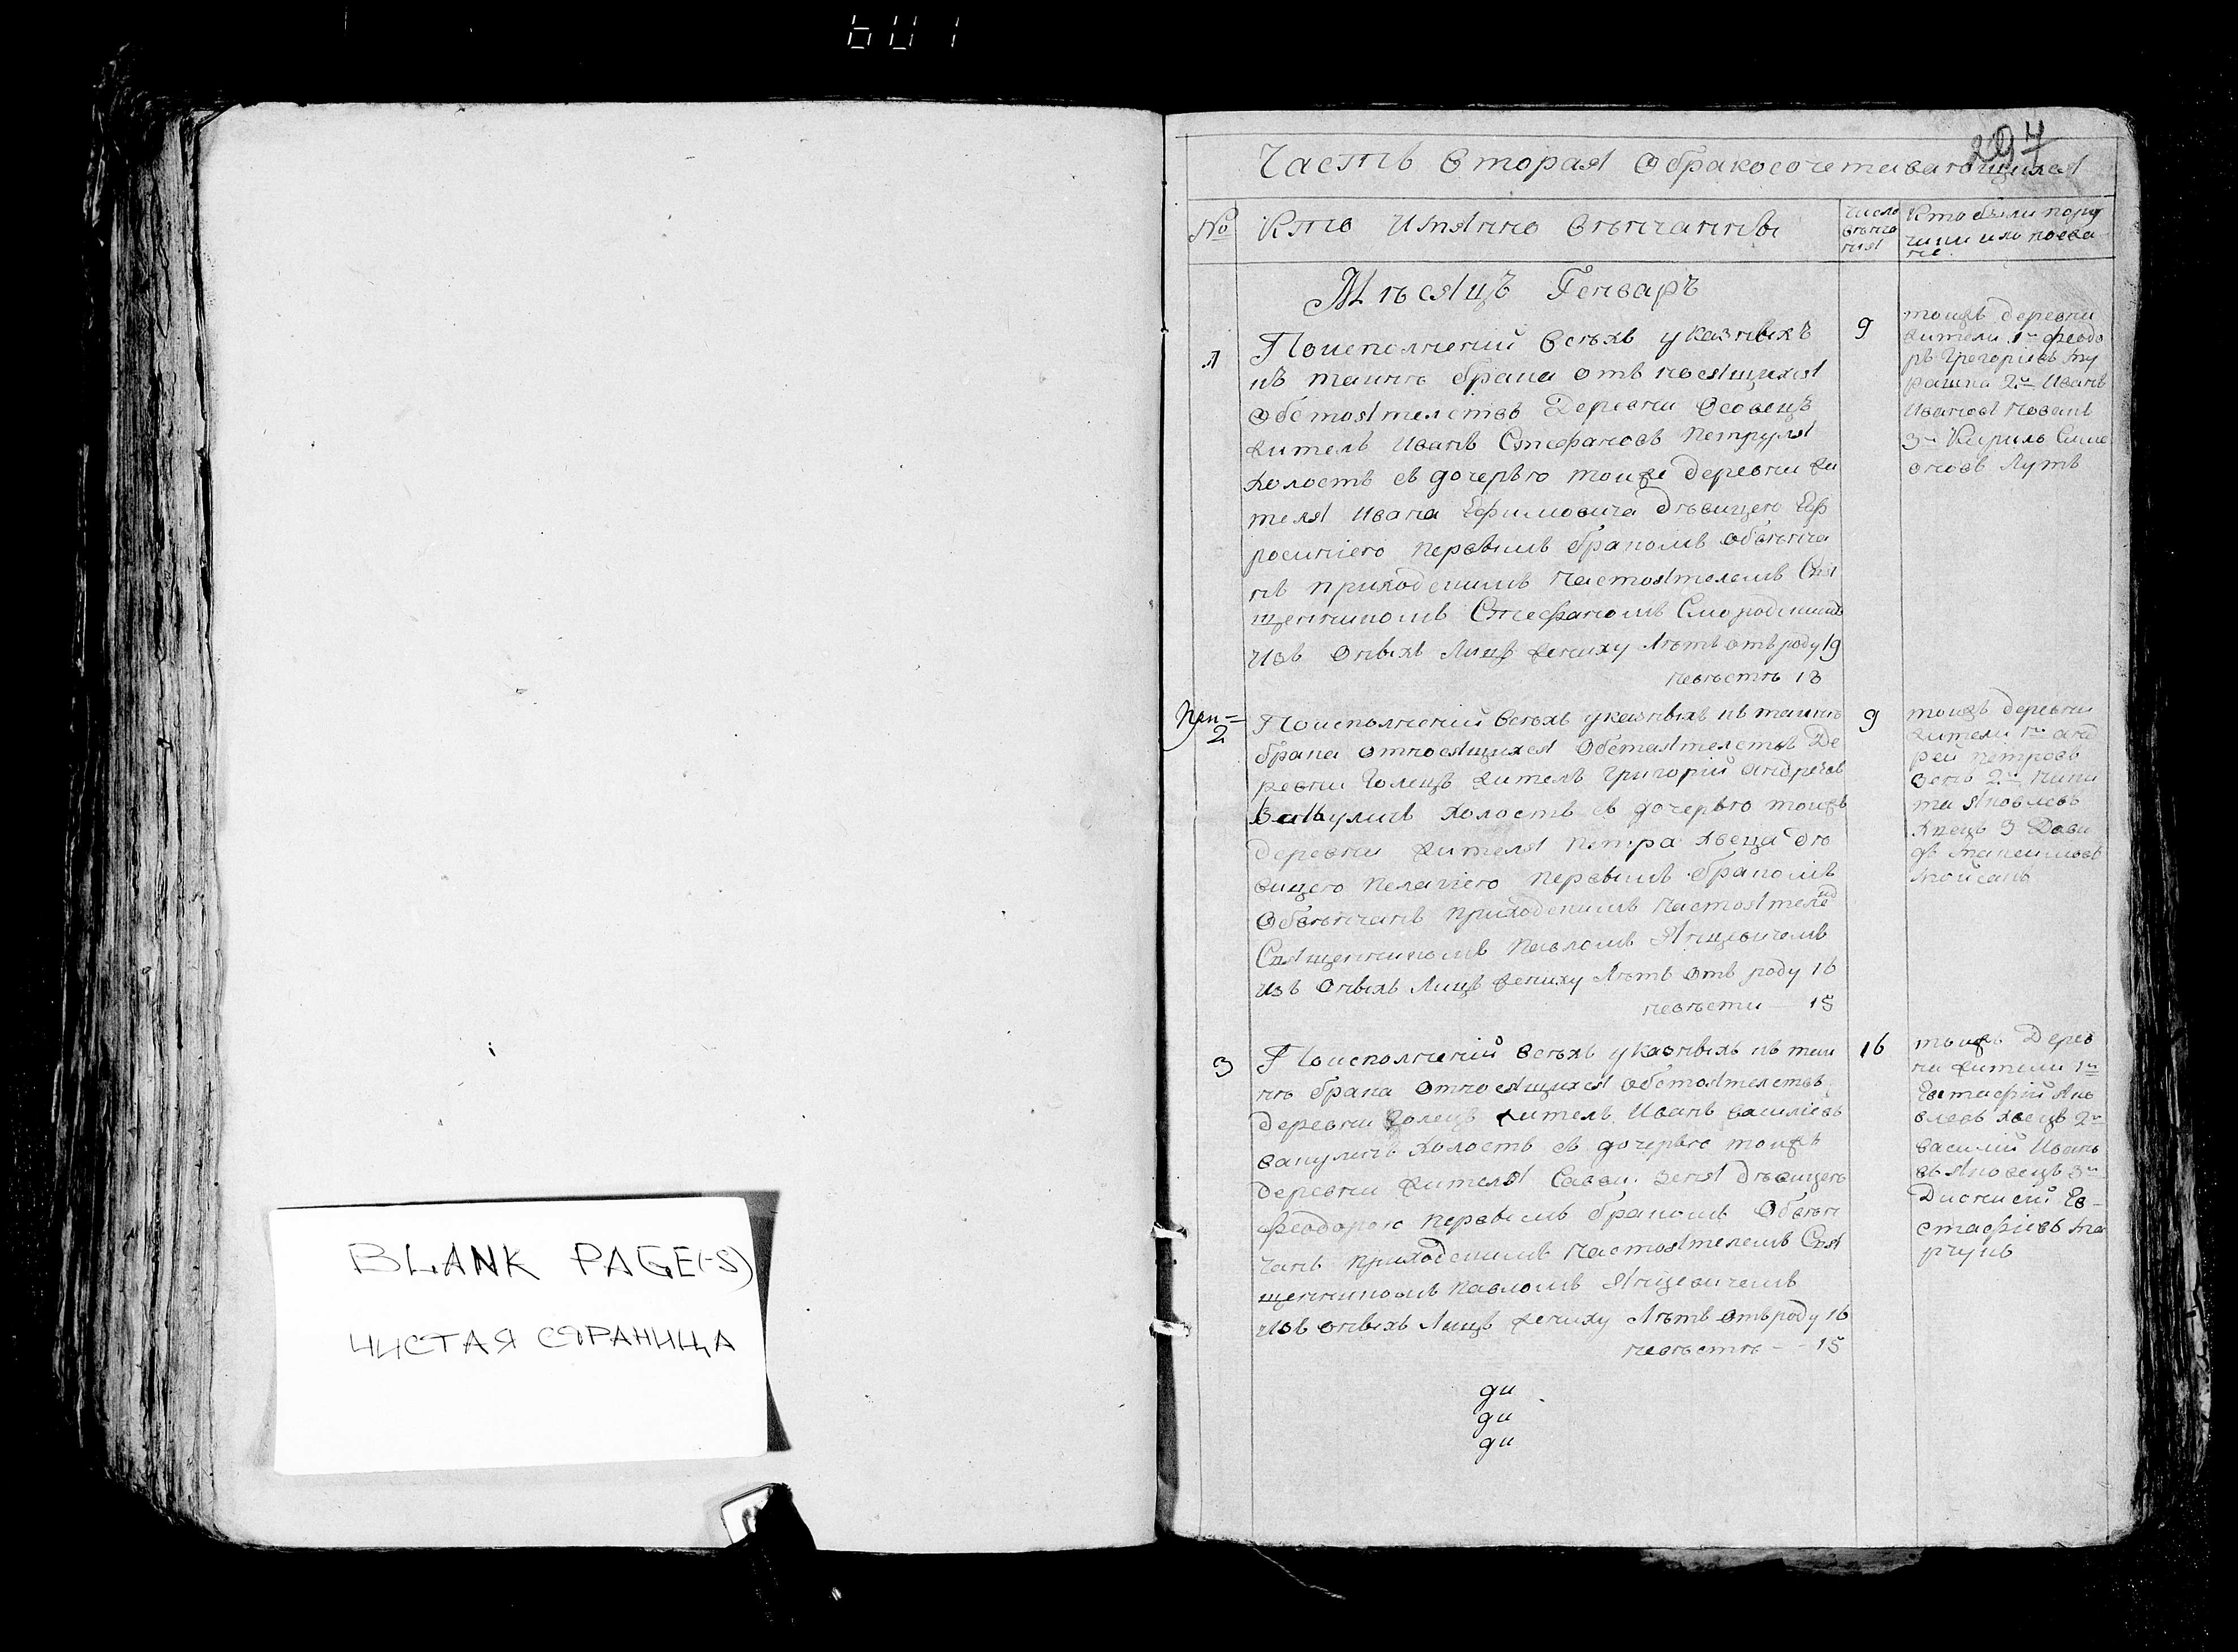 601
BLANK PAGE(-S)
ЧИСТАЯ СТРАНИЦА
297
Часть вторая о бракосочетавающихся
№
Кто имянно венчанны
число венчания
Кто были поручики или поезжане.
Мѣсяцъ Генварь
1
По исполнении всѣхъ указныхъ
къ таинѣ брака отъ носящихся
обстоятелствъ Деревни Осовецъ
житель Иванъ Стефановъ Петруля
холостъ съ дочерью тоиже деревни жи
теля Ивана Ефимовича дѣвицею Еф
росиниею первымъ бракомъ обвенча
нъ приходскимъ настоятелемъ Свя
щенникомъ Стефаномъ Смородским
изъ оныхъ лицъ жениху лѣтъ отъ роду 19
невѣстѣ 18
9
тоижъ деревни
жители 1й Феодо
ръ Григориевъ
2й Иванъ
Ивановъ Новакъ
3й Кирилъ Симе
оновъ Лутъ
2
По исполнении всѣхъ указныхъ къ таинѣ
брака относящихся обстоятелствъ Де
ревни Голецъ житель Григорий Андреевъ
Вакуличъ холостъ съ дочерью тоижъ
деревни жителя Петра Хвеца дѣ
вицею Пелагиею первымъ бракомъ
обвѣнчанъ приходскимъ настоятеле
Священникомъ Павломъ Янцевичемъ
изъ оныхъ лицъ жениху лѣтъ отъ роду 16
невѣсти — 15
9
тоижъ деревни
жители 1й Анд
рей Петровъ
Зень 2й Ники
та Яковлевъ
3 Дави
дъ Максимовъ
3
По исполнении всѣхъ указныхъ къ таи
нѣ брака относящихся обстоятелствъ
деревни Голецъ житель Иванъ Василиевъ
Вакуличъ холостъ съ дочерью тоижъ
деревни жителя Саввы Зеня дѣвицею
Феодорою первымъ бракомъ обвѣн
чанъ приходскимъ настоятелемъ Свя
щенникомъ Павломъ Янцевичемъ
изъ оныхъ лицъ жениху лѣтъ отъ роду 16
невѣстѣ - - 15
16
тоижъ Дерев
ни жители 1й
Евстафий Яко
влевъ Хвецъ 2й
Василий Ивано
въ Яковецъ 3й
Дионисий Ев-
стафиевъ Ма
рчукъ
ди
ди
ди